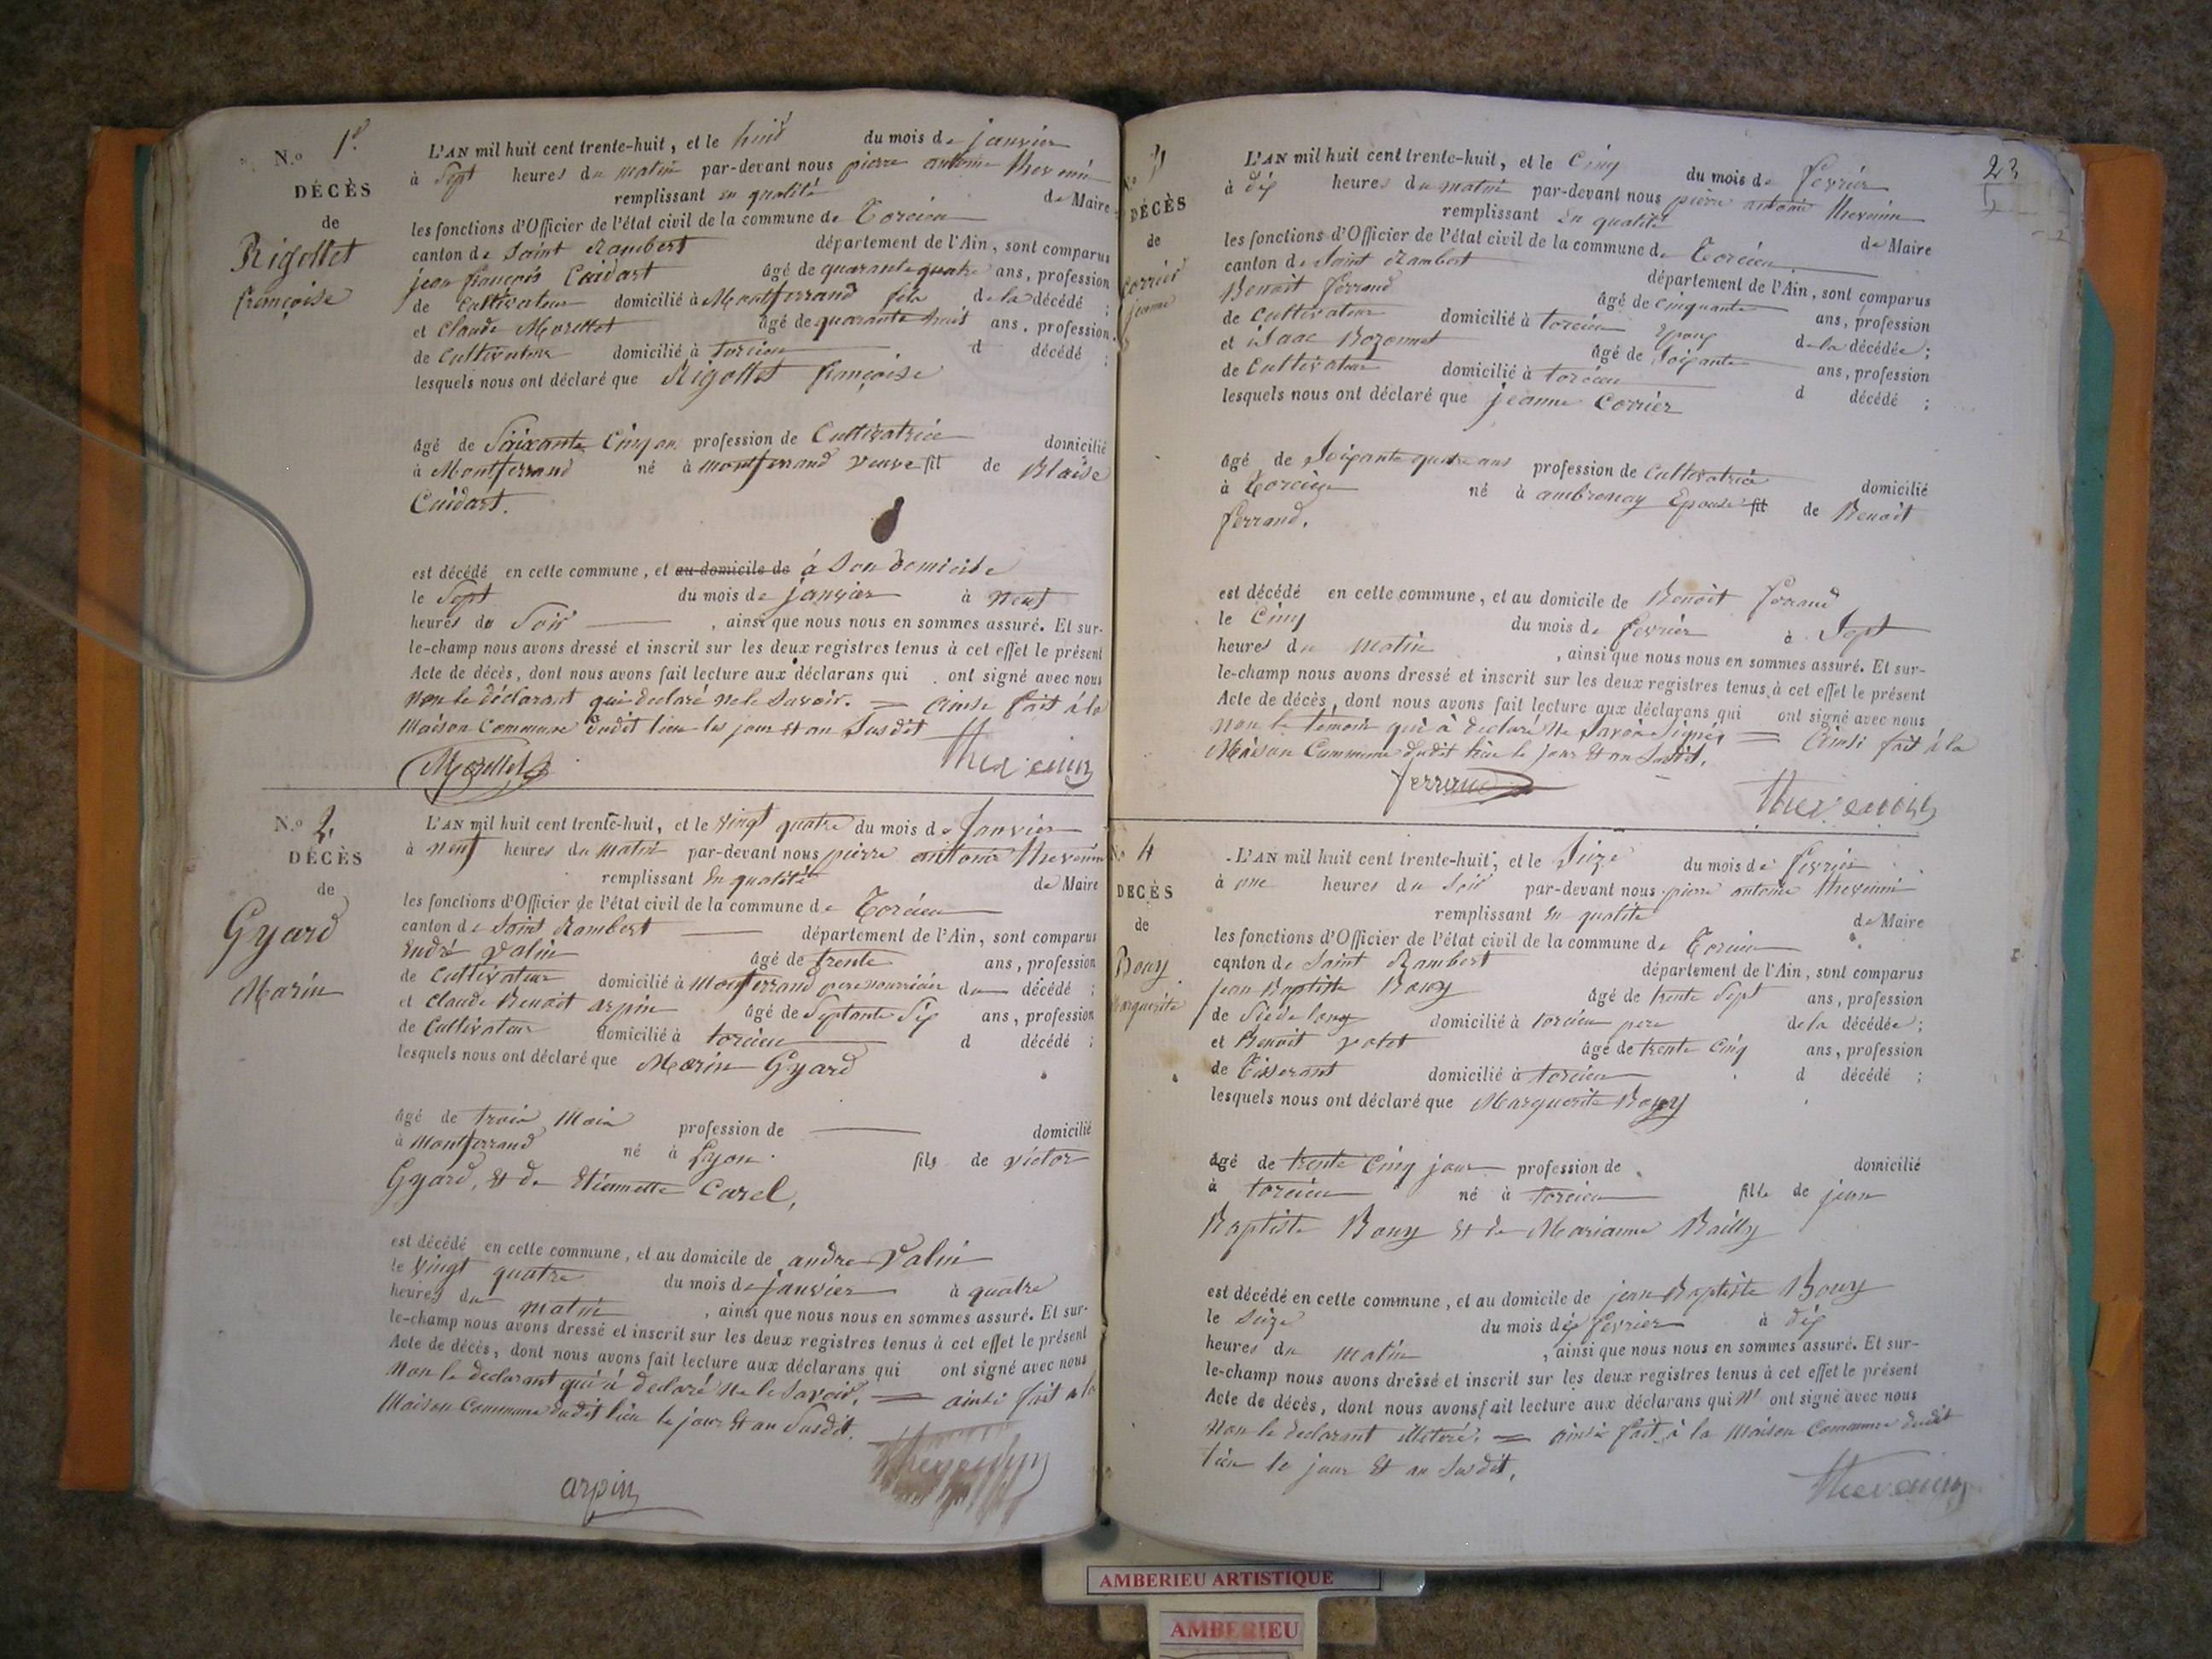 N.o 1.er
DÉCÈS
de
Rigollet
françoise
L'AN mil huit cent trente-huit, et le huit du mois de janvier
à Sept heures du matin par-devant nous pierre antoine thevenin
remplissant en qualité de Maire
les fonctions d'Officier de l'état civil de la commune de Torcieu
canton de Saint Rambert département de l'Ain, sont comparus
jean françois Cuidart âgé de quarante quatre ans, profession
de Cultivateur domicilié à Montferrand fils de la décédé ;
et Claude Morellet âgé de quarante huit ans, profession
de Cultivateur domicilié à torcieu d décédé ;
lesquels nous ont déclaré que Rigollet françoise
âgé de Soixante Cinq an profession de Cultivatrice domicilié
à Montferrand né à montferrand veuve fil de Blaise
Cuidart.
est décédé en cette commune, et au domicile de à Son domicile
le Sept du mois de janvier à neuf
heures du Soir , ainsi que nous nous en sommes assuré. Et sur-
le-champ nous avons dressé et inscrit sur les deux registres tenus à cet effet le présent
Acte de décès, dont nous avons fait lecture aux déclarans qui ont signé avec nous
non le déclarant qui declaré ne le Savoir. = Ainsi fait à la
Maison Commune dudit lieu les jour et an Susdit
Morellet thevenin
N.o 2.
DÉCÈS
de
Gyard
Marin
L'AN mil huit cent trente-huit, et le vingt quatre du mois de Janvier
à neuf heures du matin par-devant nous pierre antoine thevenin
remplissant en qualité de Maire
les fonctions d'Officier de l'état civil de la commune de Torcieu
canton de Saint Rambert département de l'Ain, sont comparus
André Valin âgé de trente ans, profession
de Cultivateur domicilié à Montferrand pere nourricier du décédé ;
et Claude Benoit arpin âgé de Septante Six ans, profession
de Cultivateur domicilié à torcieu d décédé ;
lesquels nous ont déclaré que Marin Gyard
âgé de trois Mois profession de domicilié
à Montferrand né à Lyon fils de victor
Gyard, et de Etiennette Carel,
est décédé en cette commune, et au domicile de andre Valin
le vingt quatre du mois de janvier à quatre
heures du matin , ainsi que nous nous en sommes assuré. Et sur-
le-champ nous avons dressé et inscrit sur les deux registres tenus à cet effet le présent
Acte de décès, dont nous avons fait lecture aux déclarans qui ont signé avec nous
non le declarant qui à declaré ne le Savoir. = ainsi fait a la
Maison Commune dudit lieu le jour et an Susdit.
arpin thevenin
23
N.o 3
DÉCÈS
de
Corrier
jeanne
L'AN mil huit cent trente-huit, et le Cinq du mois de fevrier
à dix heures du matin par-devant nous pierre antoine thevenin
remplissant en qualité de Maire
les fonctions d'Officier de l'état civil de la commune de Torcieu
canton de Saint Rambert département de l'Ain, sont comparus
Benoit ferrand âgé de cinquante ans, profession
de Cultivateur domicilié à torcieu Epoux de la décédée ;
et isaac Bozonnet âgé de Soixante ans, profession
de Cultivateur domicilié à torcieu d décédé ;
lesquels nous ont déclaré que jeanne Corrier
âgé de Soixante quatre ans profession de Cultivatrice domicilié
à Torcieu né à ambronay Epouse fil de Benoit
ferrand.
est décédé en cette commune, et au domicile de Benoit ferrand
le Cinq du mois de fevrier à Sept
heures du matin , ainsi que nous nous en sommes assuré. Et sur-
le-champ nous avons dressé et inscrit sur les deux registres tenus à cet effet le présent
Acte de décès, dont nous avons fait lecture aux déclarans qui ont signé avec nous
non le témoin qui à declaré ne Savoir Signer = Ainsi fait à la
Maison Commune dudit lieu le jour et an Susdit.
ferrand thevenin
N.o 4
DECÈS
de
Bouy
Marguerite
L'AN mil huit cent trente-huit, et le Seize du mois de fevrier
à une heures du Soir par-devant nous pierre antoine thevenin
remplissant en qualité de Maire
les fonctions d'Officier de l'état civil de la commune de Torcieu
canton de Saint Rambert département de l'Ain, sont comparus
jean Baptiste Bouy âgé de trente Sept ans, profession
de Siede long domicilié à torcieu pere de la décédée ;
et Benoit valet âgé de trente Cinq ans, profession
de Tisserant domicilié à torcieu d décédé ;
lesquels nous ont déclaré que Marguerite Bouy
âgé de trente Cinq jour profession de domicilié
à torcieu né à torcieu fille de jean
Baptiste Bouy et de Marianne Bailly
est décédé en cette commune, et au domicile de jean Baptiste Bouy
le Seize du mois de fevrier à dix
heures du matin , ainsi que nous nous en sommes assuré. Et sur-
le-champ nous avons dressé et inscrit sur les deux registres tenus à cet effet le présent
Acte de décès, dont nous avons fait lecture aux déclarans qui n' ont signé avec nous
non le declarant illiteré. = ainsi fait à la Maison Commune dudit
lieu le jour et an Susdit.
thevenin
AMBERIEU ARTISTIQUE
AMBERIEU